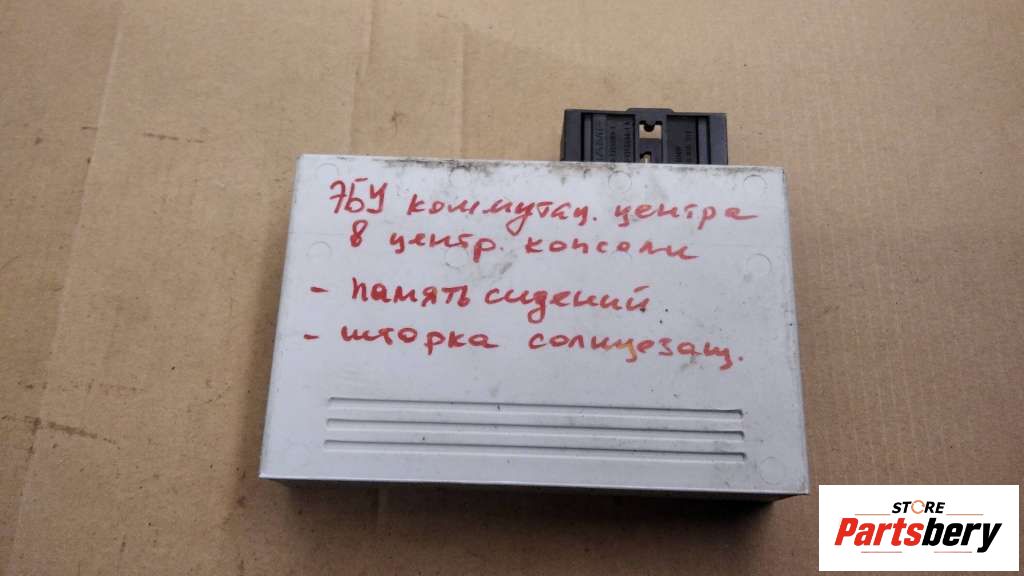 ЭБУ коммутац. центра
в центр. консоли
- память сидений
- шторка солнцезащ.
STORE
Partsbery